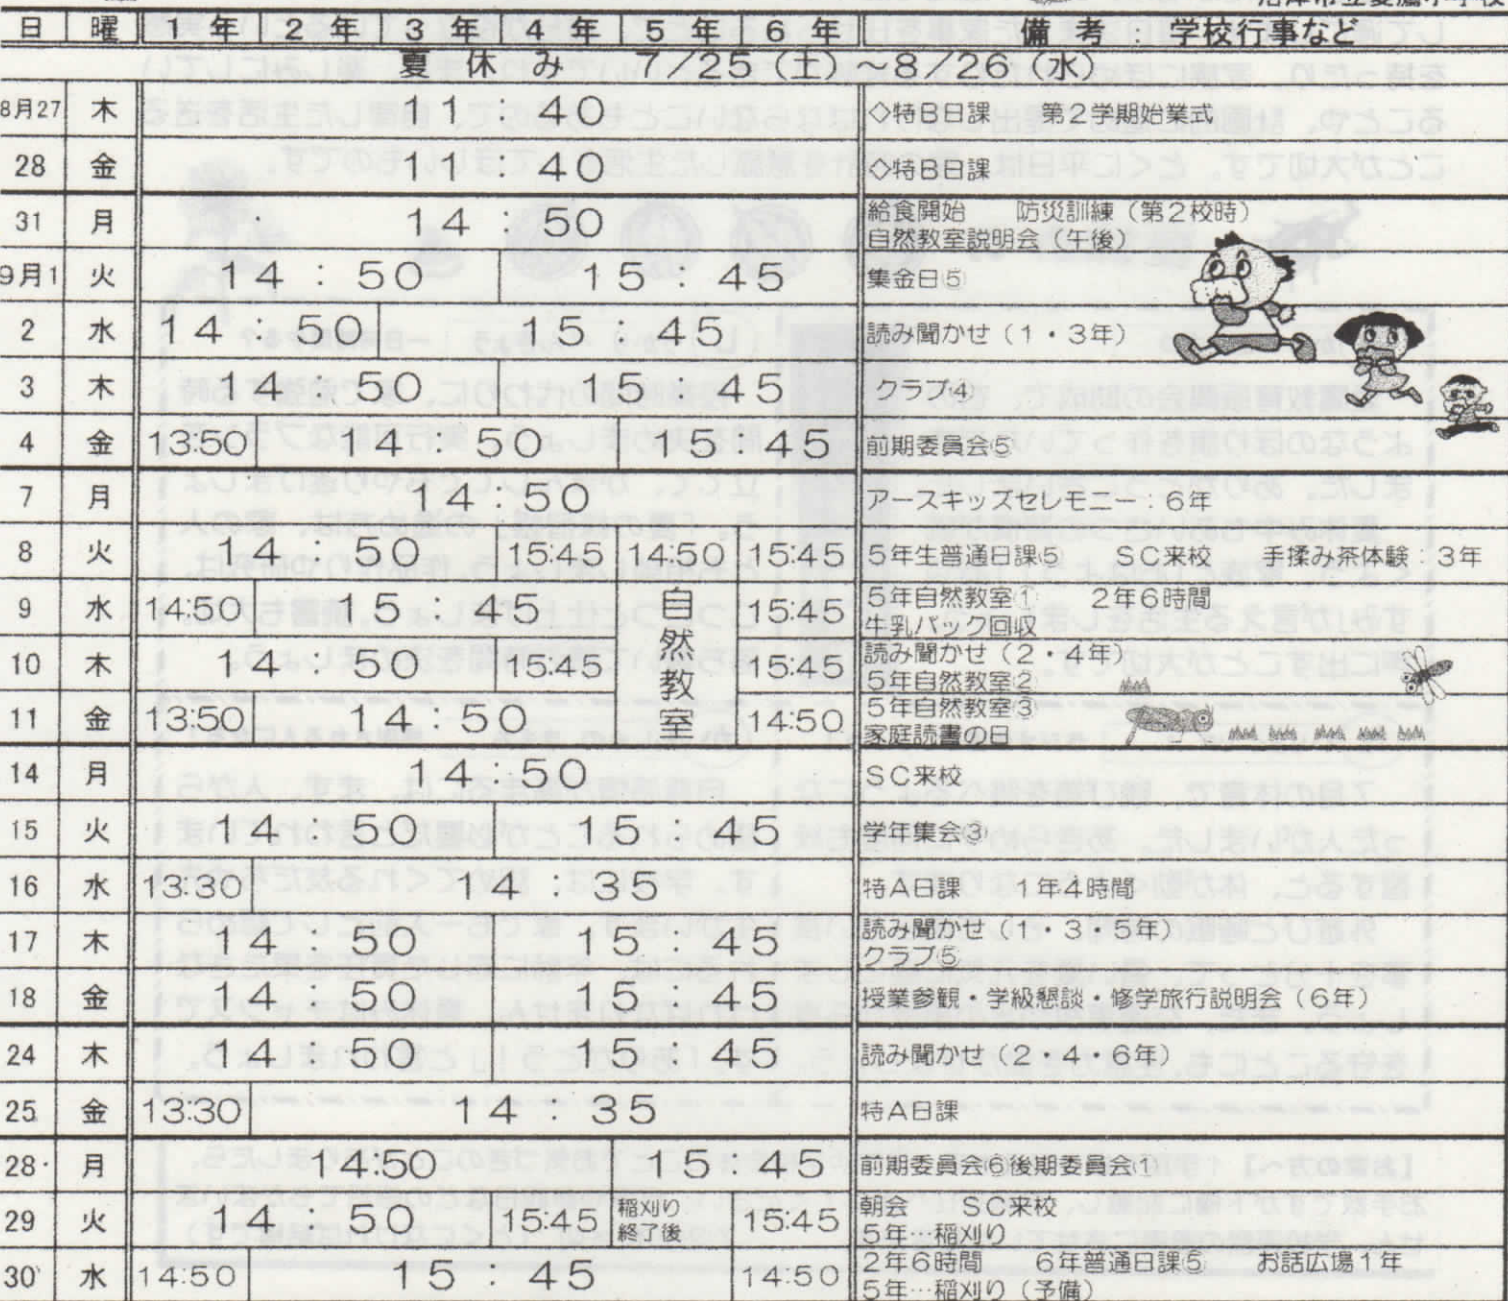 日 曜 1年 2年 3年 4年 5年 6年 備考:学校行事など
夏休み 7/25(土)~8/26(水)
8月27 木 11:40 ◇特B日課 第2学期始業式
28 金 11:40 ◇特B日課
31 月 14:50 給食開始 防災訓練(第2校時)
自然教室説明会(午後)
9月1 火 14:50 15:45 集金日⑤
2 水 14:50 15:45 読み聞かせ(1・3年)
3 木 14:50 15:45 クラブ④
4 金 13:50 14:50 15:45 前期委員会⑤
7 月 14:50 アースキッズセレモニー:6年
8 火 14:50 15:45 14:50 15:45 5年生普通日課⑤ SC来校 手揉み茶体験:3年
9 水 14:50 15:45 自然教室 15:45 5年自然教室① 2年6時間
牛乳パック回収
10 木 14:50 15:45 15:45 読み聞かせ(2・4年)
5年自然教室②
11 金 13:50 14:50 14:50 5年自然教室③
家庭読書の日
14 月 14:50 SC来校
15 火 14:50 15:45 学年集会③
16 水 13:30 14:35 特A日課 1年4時間
17 木 14:50 15:45 読み聞かせ(1・3・5年)
クラブ⑤
18 金 14:50 15:45 授業参観・学級懇談・修学旅行説明会(6年)
24 木 14:50 15:45 読み聞かせ(2・4・6年)
25 金 13:30 14:35 特A日課
28 月 14:50 15:45 前期委員会⑥後期委員会①
29 火 14:50 15:45 稲刈り終了後 15:45 朝会 SC来校
5年…稲刈り
30 水 14:50 15:45 14:50 2年6時間 6年普通日課⑤ お話広場1年
5年…稲刈り(予備)